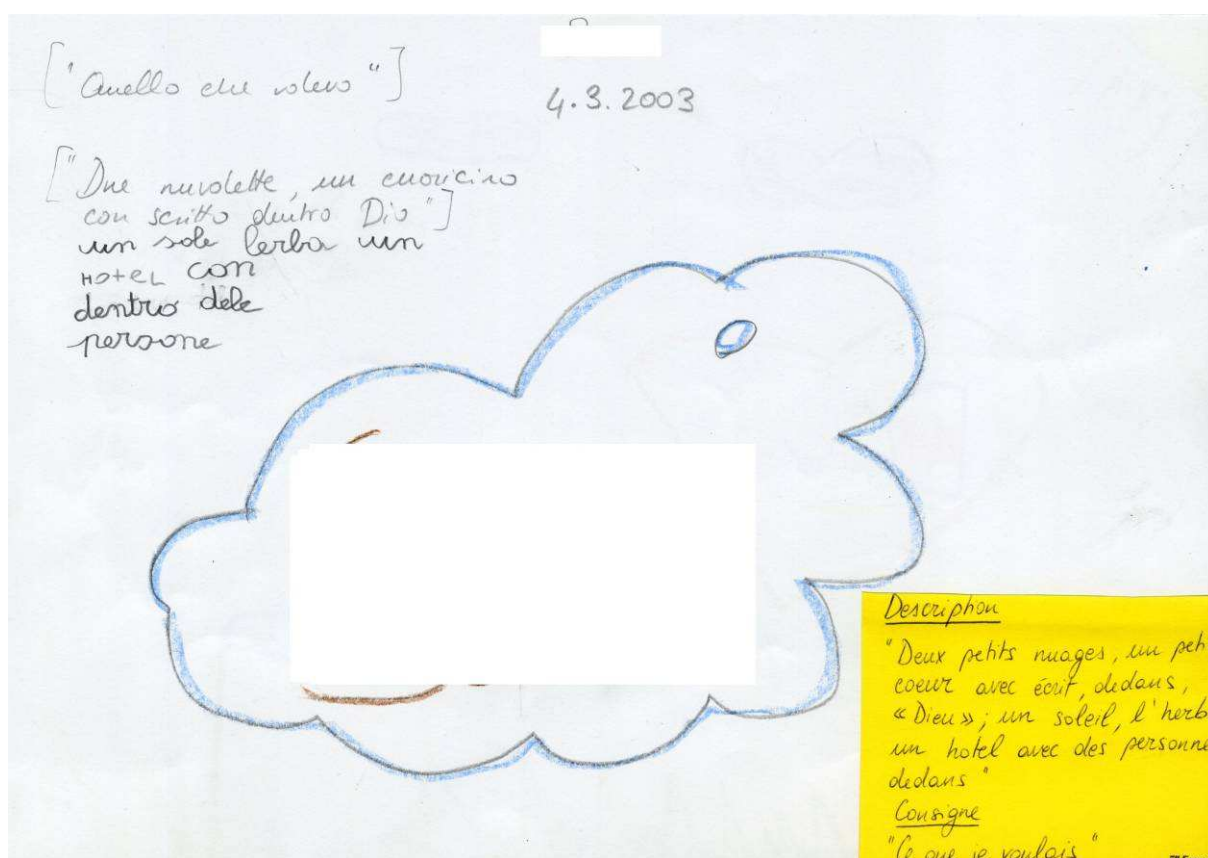 ["Quello che volevo"]
4.3.2003
["Due nuvolette, un cuoricino
con scritto dentro Dio"]
un sole lerba un
HOTEL con
dentro dele
persone
Description
"Deux petits nuages, un peti
coeur avec écrit, dedans,
« Dieu »; un soleil, l'herb
un hotel avec des personne
dedans"
Consigne
"Ce que je voulais"